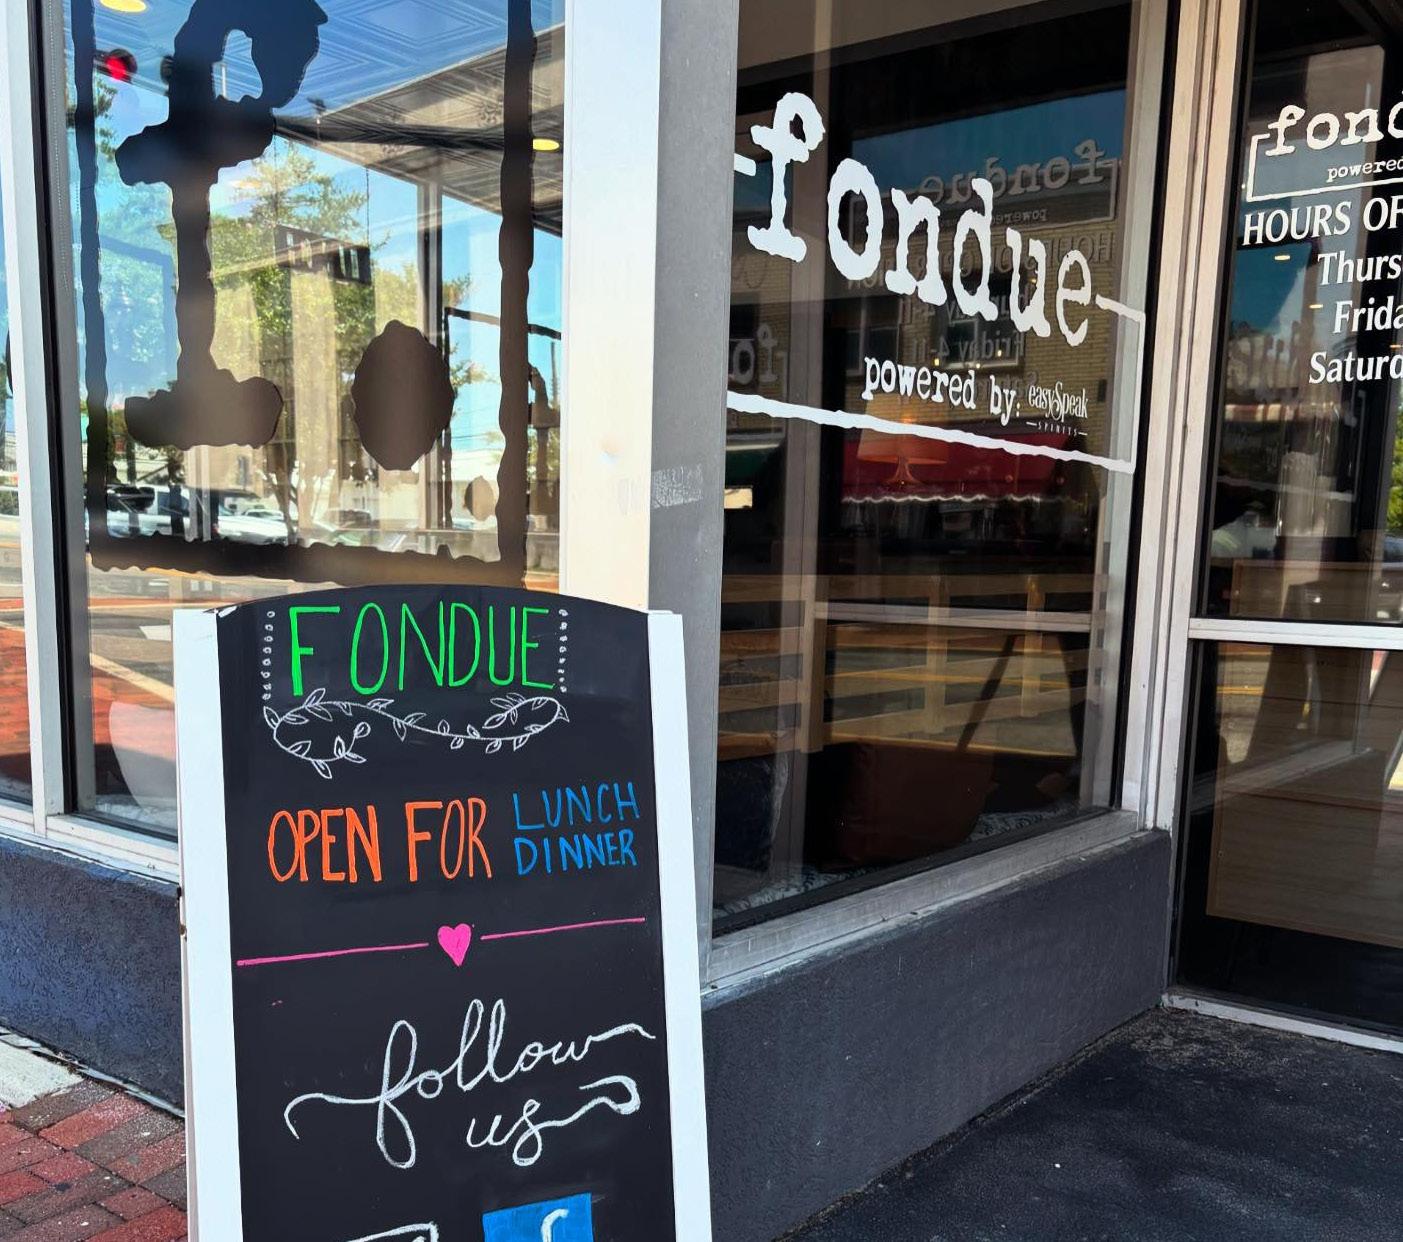 f.
fondue
powered by: easySpeak
SPIRITS
fond
powered
HOURS OF
Thurs
Frida
Saturd
FONDUE
OPEN FOR LUNCH
DINNER
follow
us
f